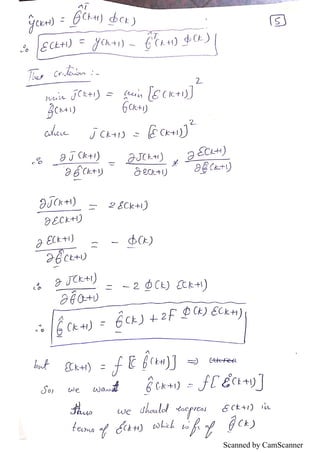 ŷ(k+1) = θ̂ᵀ(k+1) ϕ(k)
[5]
∴ ε(k+1) = y(k+1) − θ̂ᵀ(k+1) ϕ(k)
criterion :-
min J(k+1) = min [ε(k+1)]²
θ̂(k+1) θ̂(k+1)
where J(k+1) = [ε(k+1)]²
∴ ∂J(k+1)/∂θ̂(k+1) = ∂J(k+1)/∂ε(k+1) * ∂ε(k+1)/∂θ̂(k+1)
∂J(k+1)/∂ε(k+1) = 2 ε(k+1)
∂ε(k+1)/∂θ̂(k+1) = − ϕ(k)
∴ ∂J(k+1)/∂θ̂(k+1) = −2 ϕ(k) ε(k+1)
∴ θ̂(k+1) = θ̂(k) + 2F ϕ(k) ε(k+1)
but ε(k+1) = f[θ̂(k+1)] ⇒
So, we want θ̂(k+1) = f[ε°(k+1)]
thus we should express ε(k+1) in
terms of ε°(k+1) which is f. of θ̂(k)
Scanned by CamScanner